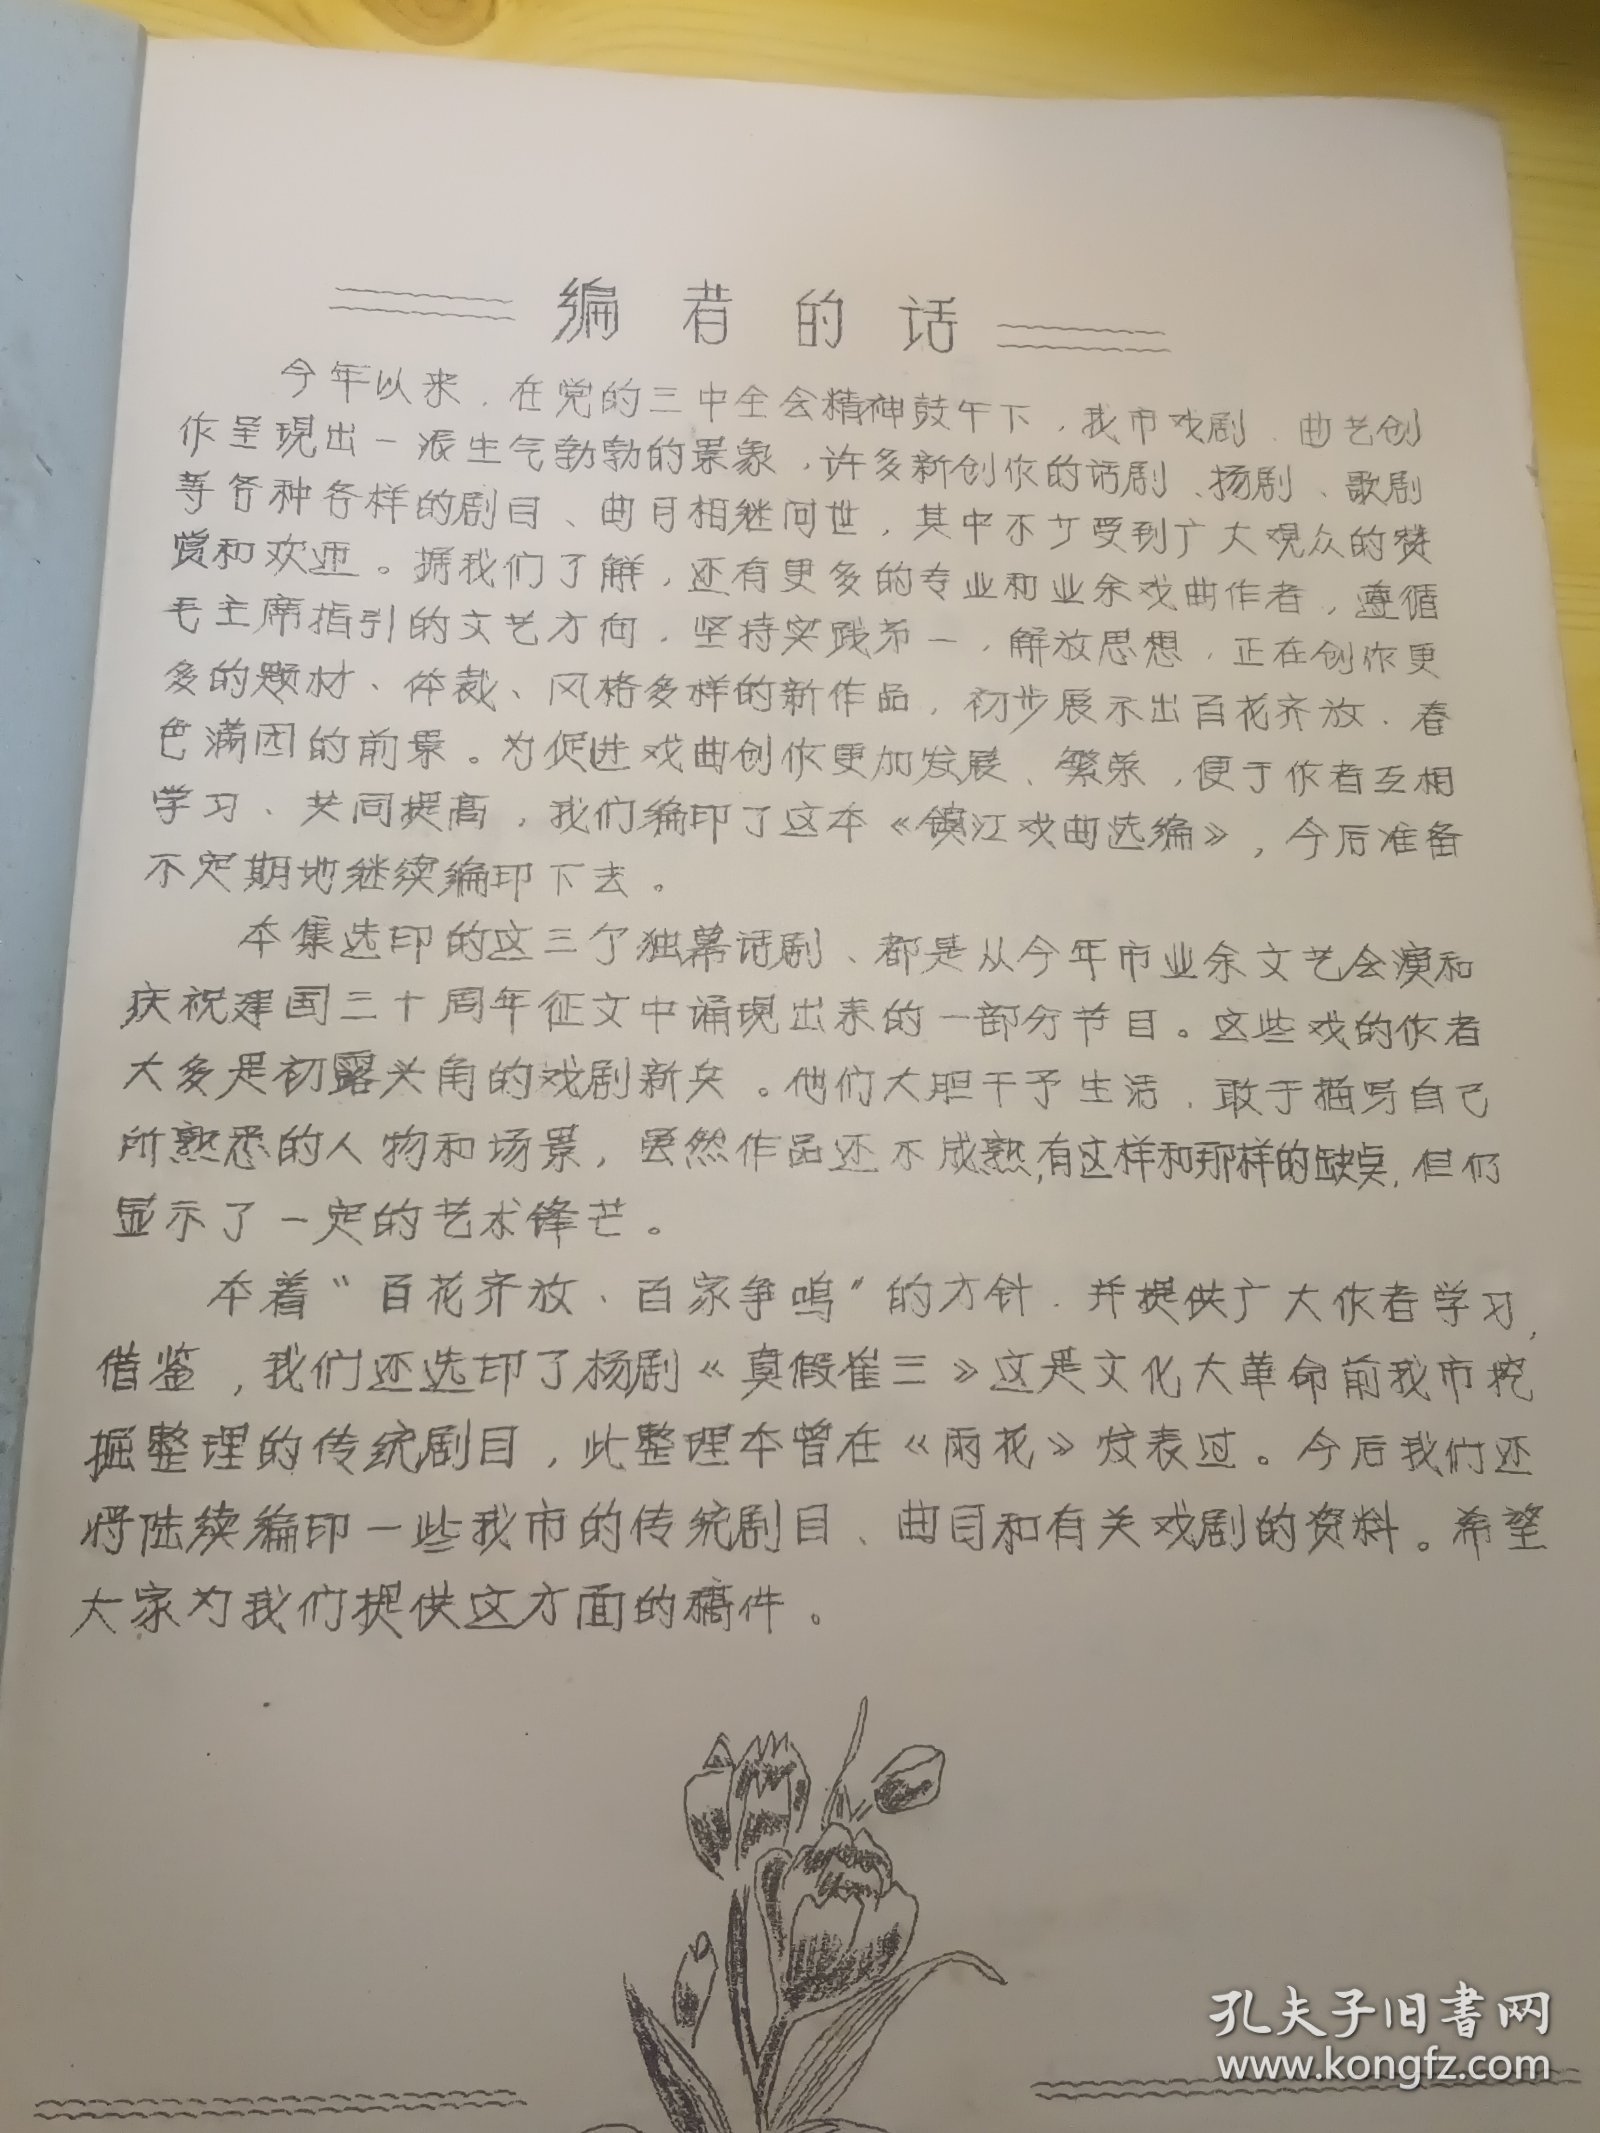 编者的话
今年以来．在党的三中全会精神鼓午下，我市戏剧、曲艺创
作呈现出一派生气勃勃的景象，许多新创作的话剧、扬剧、歌剧
等各种各样的剧目、曲目相继问世，其中不少受到广大观众的赞
赏和欢迎。据我们了解，还有更多的专业和业余戏曲作者，遵循
毛主席指引的文艺方向，坚持实践第一，解放思想，正在创作更
多的题材、体裁、风格多样的新作品，初步展示出百花齐放、春
色满园的前景。为促进戏曲创作更加发展、繁荣，便于作者互相
学习、共同提高，我们编印了这本《镇江戏曲选编》，今后准备
不定期地继续编印下去。
本集选印的这三个独幕话剧、都是从今年市业余文艺会演和
庆祝建国三十周年征文中涌现出来的一部分节目。这些戏的作者
大多是初露头角的戏剧新兵。他们大胆干予生活，敢于描写自己
所熟悉的人物和场景，虽然作品还不成熟，有这样和那样的缺点，但仍
显示了一定的艺术锋芒。
本着“百花齐放、百家争鸣”的方针．并提供广大作者学习，
借鉴，我们还选印了杨剧《真假崔三》这是文化大革命前我市挖
掘整理的传统剧目，此整理本曾在《雨花》发表过。今后我们还
将陆续编印一些我市的传统剧目、曲目和有关戏剧的资料。希望
大家为我们提供这方面的稿件。
孔夫子旧书网
www.kongfz.com